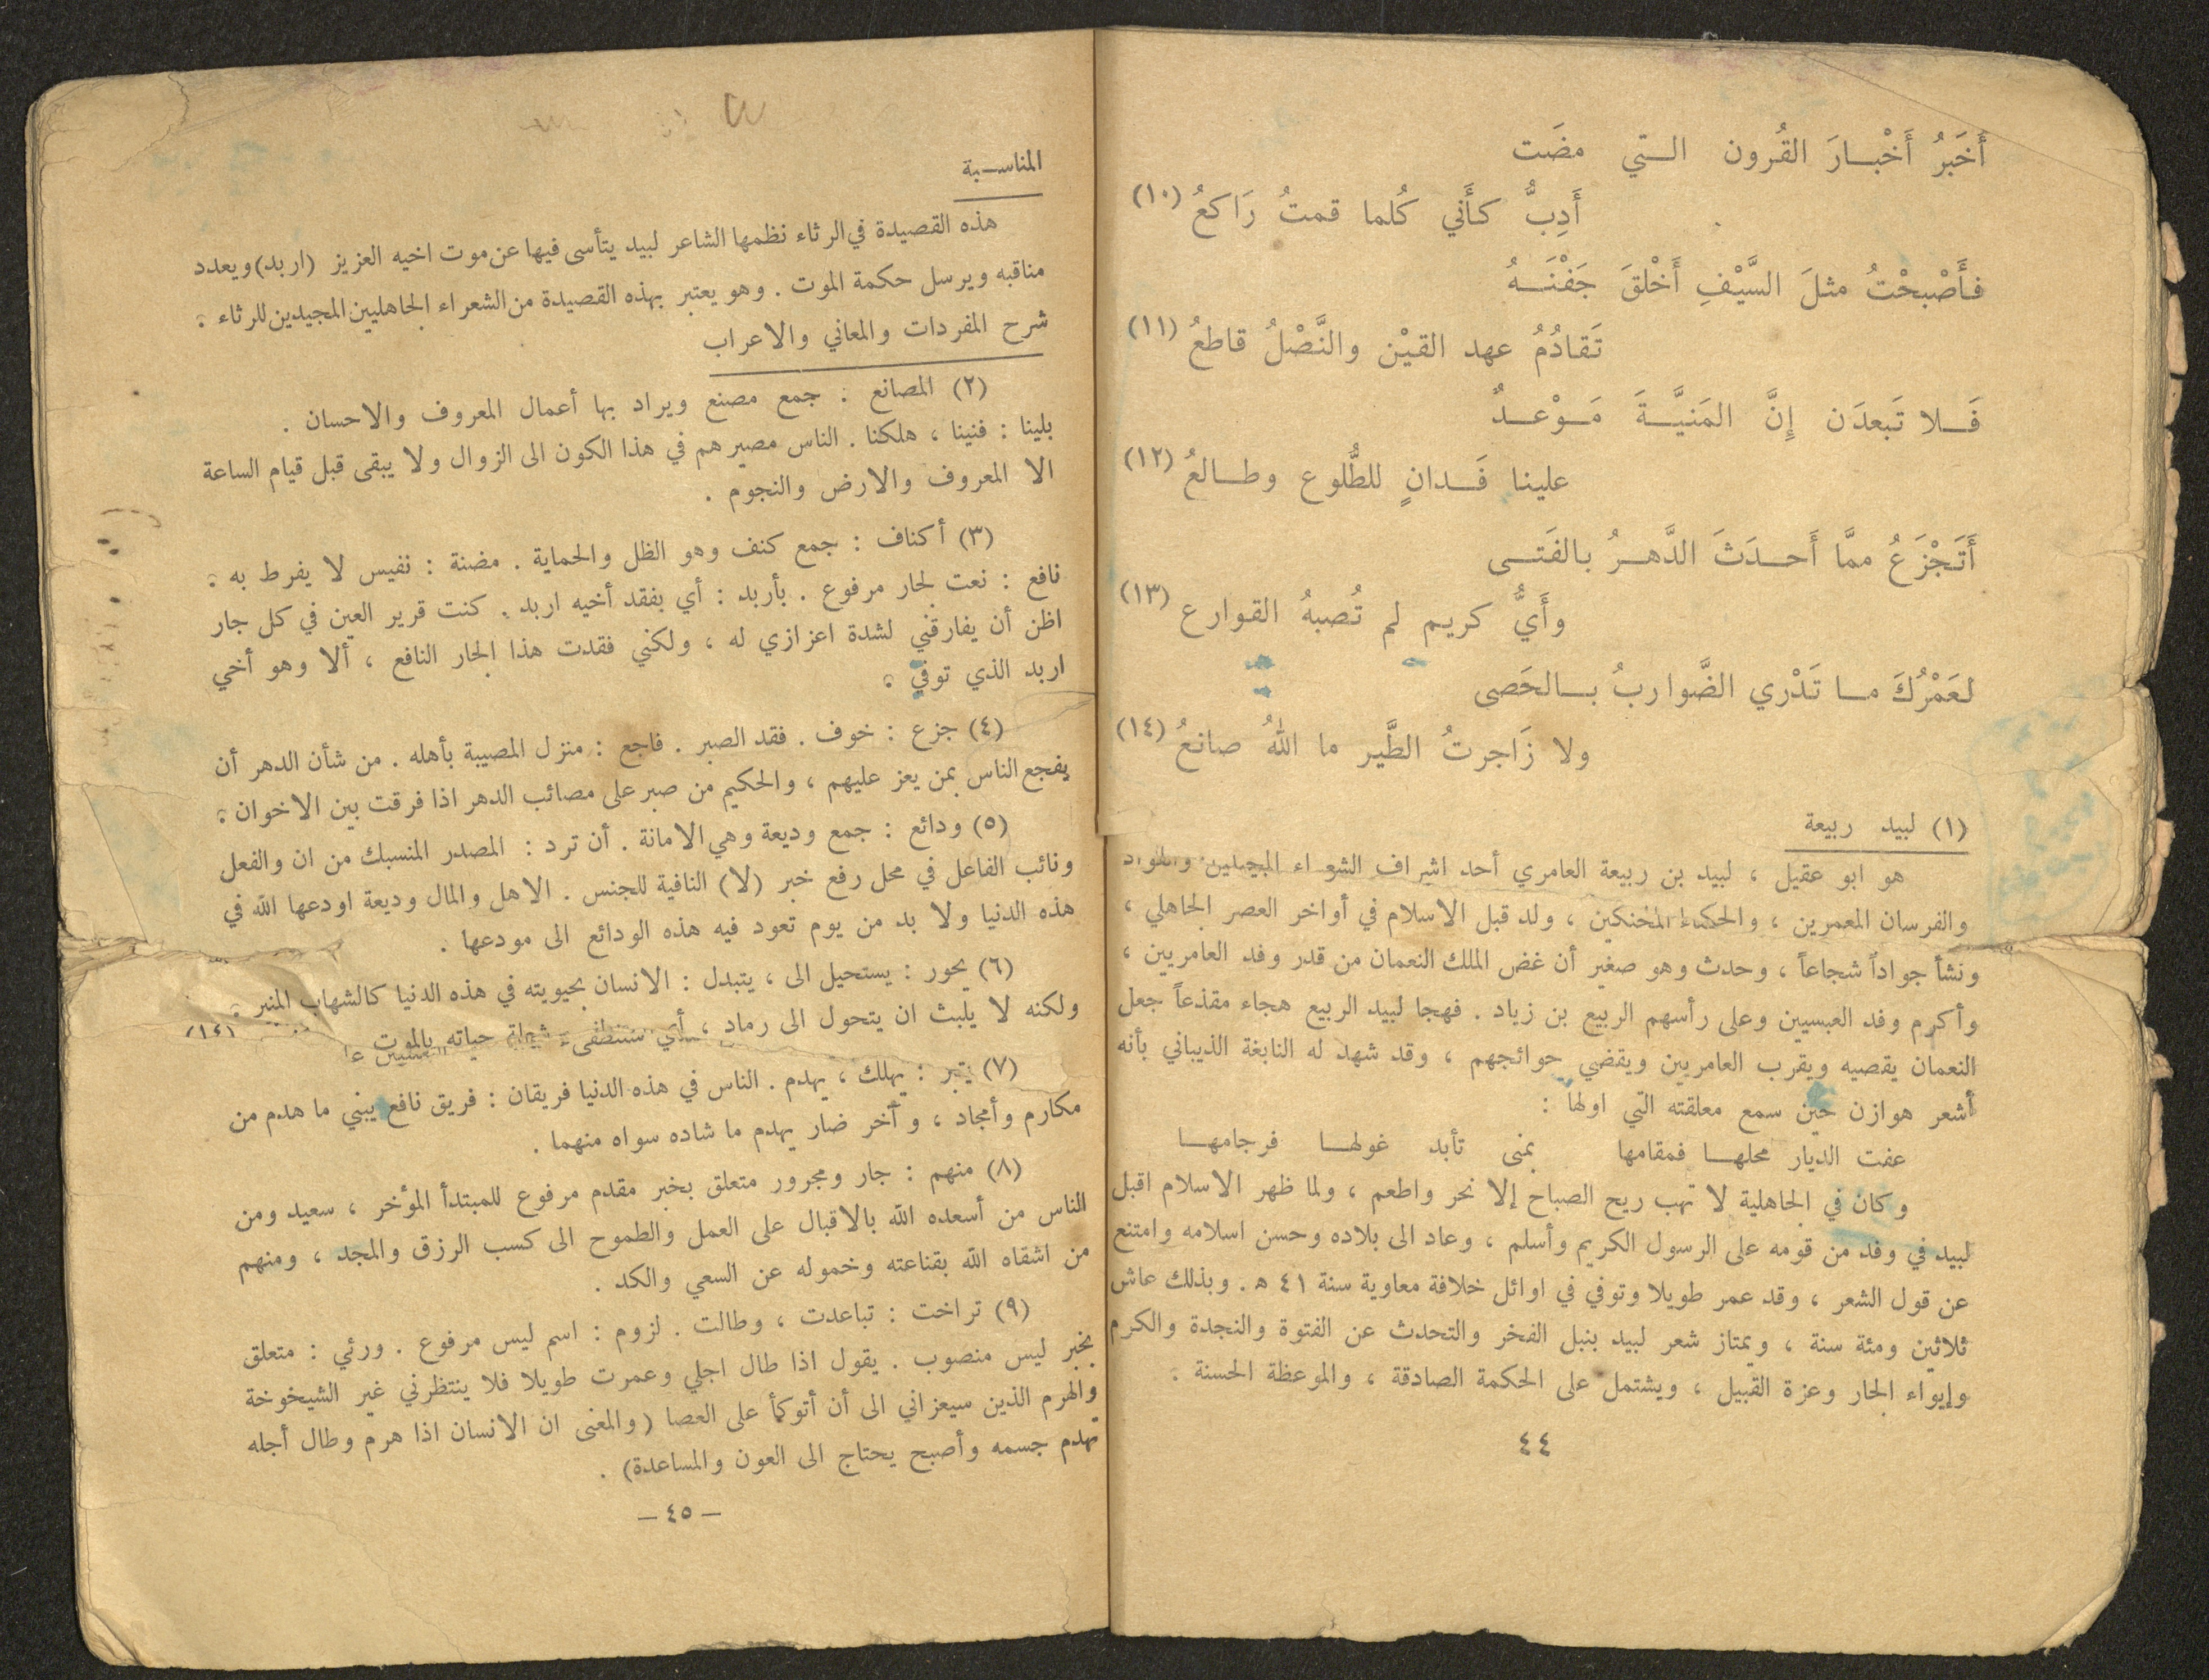 أَخَبرُ أَخْبـارَ القُرون الـتي مضَت
أَدِبُّ كـأَني كُلما قمتُ رَاكعُ (١٠)
فـأَصْبحْتُ مثلَ السَّيْفِ أَخْلقَ جَفْنَـهُ
تَقادُمُ عهد القيْن والنَّصْلُ قاطعُ (١١)
فَـلا تَبعدَن إِنَّ المَنيَّـةَ مَـوْعـدٌ
علينا فَـدانٍ للطُّلوع وطـالعُ (١٢)
أَتَجْزَعُ ممَّا أَحـدَثَ الدَّهـرُ بالفَتـى
وأَيُّ كريم لم تُصبهُ القوارع (١٣)
لعَمْرُكَ مـا تَدْري الضَّواربُ بـالحَصى
ولا زَاجرتُ الطَّير ما اللهُ صانعُ (١٤)
(١) لبيد ربيعة
هو ابو عقيل ، لبيد بن ربيعة العامري أحد اشراف الشعراء المجيدين
والفرسان المعمرين ، والحكماء المحنكين ، ولد قبل الاسلام في أواخر العصر الجاهلي ،
ونشأ جواداً شجاعاً ، وحدث وهو صغير أن غض الملك النعمان من قدر وفد العامريين ،
وأكرم وفد العبسيين وعلى رأسهم الربيع بن زياد . فهجا لبيد الربيع هجاء مقذعاً جعل
النعمان يقصيه ويقرب العامريين ويقضي حوائجهم ، وقد شهد له النابغة الذيباني بأنه
أشعر هوازن حين سمع معلقته التي اولها :
عفت الديار محلهـا فمقامها بمنى تأبد غولهـا فرجامهـا
وكان في الجاهلية لا تهب ريح الصباح إلا نحر واطعم ، ولما ظهر الاسلام اقبل
لبيد في وفد من قومه على الرسول الكريم وأسلم ، وعاد الى بلاده وحسن اسلامه وامتنع
عن قول الشعر ، وقد عمر طويلا وتوفي في اوائل خلافة معاوية سنة ٤١ ه . وبذلك عاش
ثلاثين ومئة سنة ، ويمتاز شعر لبيد بنبل الفخر والتحدث عن الفتوة والنجدة والكرم
وإيواء الجار وعزة القبيل ، ويشتمل على الحكمة الصادقة ، والموعظة الحسنة .
٤٤
المناسـبة
هذه القصيدة في الرثاء نظمها الشاعر لبيد يتأسى فيها عن موت اخيه العزيز (اربد) ويعدد
مناقبه ويرسل حكمة الموت . وهو يعتبر بهذه القصيدة من الشعراء الجاهليين المجيدين للرثاء .
شرح المفردات والمعاني والاعراب
(٢) المصانع : جمع مصنع ويراد بها أعمال المعروف والاحسان .
بلينا : فنينا ، هلكنا . الناس مصيرهم في هذا الكون الى الزوال ولا يبقى قبل قيام الساعة
الا المعروف والارض والنجوم .
(٣) أكناف : جمع كنف وهو الظل والحماية . مضنة : نفيس لا يفرط به .
نافع : نعت لجار مرفوع . بأربد : أي بفقد أخيه اربد . كنت قرير العين في كل جار
اظن أن يفارقني لشدة اعزازي له ، ولكني فقدت هذا الجار النافع ، ألا وهو أخي
اربد الذي توفي .
(٤) جزع : خوف . فقد الصبر . فاجع : منزل المصيبة بأهله . من شأن الدهر أن
يفجع الناس بمن يعز عليهم ، والحكيم من صبر على مصائب الدهر اذا فرقت بين الاخوان .
(٥) ودائع : جمع وديعة وهي الامانة . أن ترد : المصدر المنسبك من ان والفعل
ونائب الفاعل في محل رفع خبر (لا) النافية للجنس . الاهل والمال وديعة اودعها الله في
هذه الدنيا ولا بد من يوم تعود فيه هذه الودائع الى مودعها .
(٦) يحور : يستحيل الى ، يتبدل : الانسان بحيويته في هذه الدنيا كالشهاب المنير .
ولكنه لا يلبث ان يتحول الى رماد ، أي ستنطفىء شعلة حياته بالموت
(٧) يتبر : يهلك ، يهدم . الناس في هذه الدنيا فريقان : فريق نافع يبني ما هدم من
مكارم وأمجاد ، وآخر ضار يهدم ما شاده سواه منهما .
(٨) منهم : جار ومجرور متعلق بخبر مقدم مرفوع للمبتدأ المؤخر ، سعيد ومن
الناس من أسعده الله بالاقبال على العمل والطموح الى كسب الرزق والمجد ، ومنهم
من اشقاه الله بقناعته وخموله عن السعي والكد .
(٩) تراخت : تباعدت ، وطالت . لزوم : اسم ليس مرفوع . ورئي : متعلق
بخبر ليس منصوب . يقول اذا طال اجلي وعمرت طويلا فلا ينتظرني غير الشيخوخة
والهرم الذين سيعزاني الى أن أتوكأ على العصا (والمعنى ان الانسان اذا هرم وطال أجله
تهدم جسمه وأصبح يحتاج الى العون والمساعدة) .
— ٤٥ —